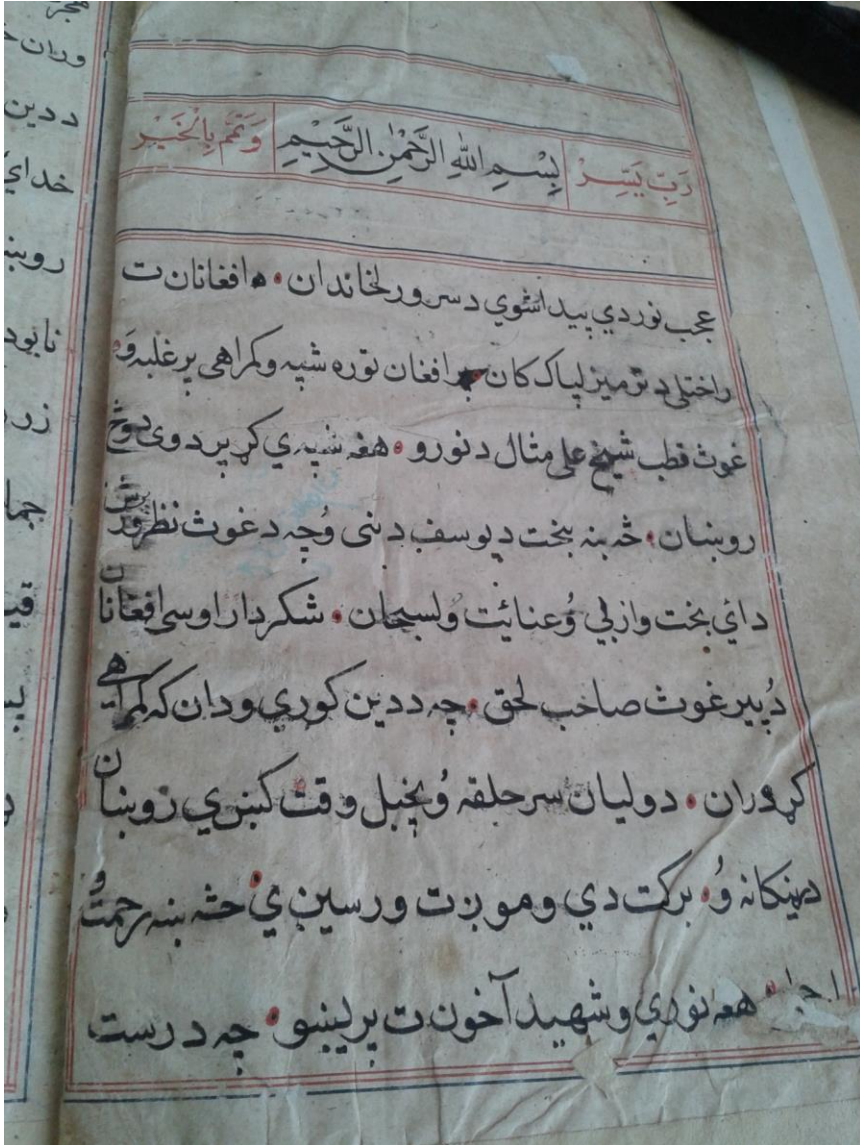 رَبِّ يَسِّرْ بِسْمِ اللهِ الرَّحْمٰنِ الرَّحِيْمِ وَتَمِّم بِالْخَيْر
عجب نور دي پيدا شوي د سرور لخاندان • ه افغانان ت
راختلی د ترميز لپاک کان • پر افغان توره شپه و کمراهی پر غلبه وَ •
غوث قطب شيخ علی مثال د نورو • هغه شپه ي کړ پر دوی دوځ
روښان • څه ښه بخت د يوسف د بنی وُ چه د غوث نظر ور
دائ بخت وازلي وُ عنائيت وُ لسبحان • شکردار اوسی افغانان
دُ پير غوث صاحب لحق • چه د دين کوري ودان که کمراهي
کړ دران • د وليان سر حلقه وُ پخپل وقت کښي ي روښان
وُ • برکت دي و موږ ت ورسيږي څه ښه رحمت وُ
هغه نوري و شهيد آخون ت پريښو • چه د رست
وران
د دين
خدای
روښ
نابود